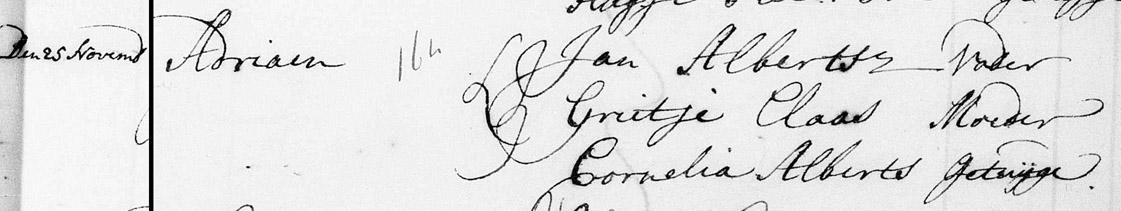 Den 25 Novemb Adriaen 164 Jan Albertsz Vader
Grietje Claas Moeder
Cornelia Alberts getuijge.